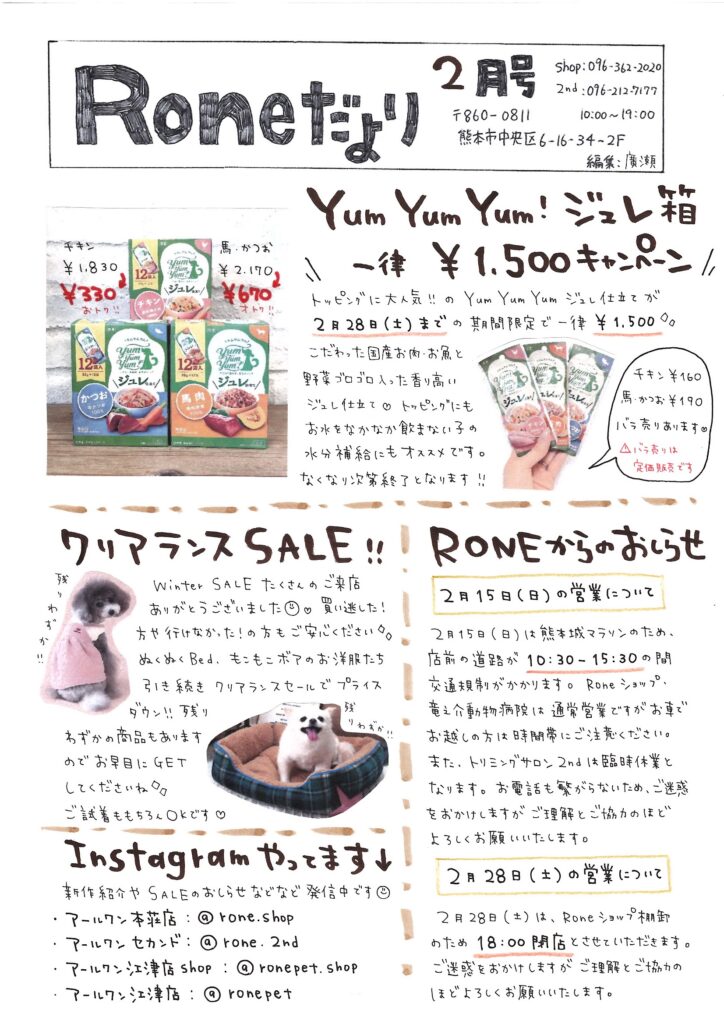 Roneだより
2月号
shop:096-362-2020
2nd:096-212-7177
〒860-0811
10:00〜19:00
熊本市中央区6-16-34-2F
編集:廣瀬
Yum Yum Yum! ジュレ箱
一律 ¥1.500 キャンペーン
チキン
¥1,830
¥330
おトク!!
馬・かつお
¥2.170
¥670
オトク!!
12個入
Yum Yum Yum!
ジュレ仕立て
チキン
12個入
Yum Yum Yum!
ジュレ仕立て
かつお
12個入
Yum Yum Yum!
ジュレ仕立て
馬肉
トッピングに大人気!! の Yum Yum Yum ジュレ仕立てが
2月28日(土)までの期間限定で一律 ¥1,500
こだわった国産お肉・お魚と
野菜ゴロゴロ入った香り高い
ジュレ仕立て♡ トッピングにも
お水をなかなか飲まない子の
水分補給にもオススメです。
なくなり次第終了となります!!
チキン¥160
馬・かつお¥190
バラ売りあります♡
⚠バラ売りは
定価販売です
クリアランスSALE!!
残りわずか!!
Winter SALE たくさんのご来店
ありがとうございました☺♡ 買い逃した!
方や行けなかった!の方もご安心ください
ぬくぬくBed、もこもこボアのお洋服たち
引き続き クリアランスセールで プライス
ダウン!! 残り
わずかの商品もあります
のでお早目にGET
してくださいね
ご試着ももちろんOKです♡
残りわずか!!
Instagramやってます↓
新作紹介や SALEのおしらせなどなど 発信中です☺
・アールワン本荘店:@rone.shop
・アールワンセカンド:@rone.2nd
・アールワン江津店shop:@ronepet.shop
・アールワン江津店:@ronepet
RONEからのおしらせ
2月15日(日)の営業について
2月15日(日)は熊本城マラソンのため、
店前の道路が 10:30-15:30の間
交通規制がかかります。Roneショップ、
竜之介動物病院は通常営業ですがお車で
お越しの方は時間帯にご注意ください。
また、トリミングサロン2ndは臨時休業と
なります。お電話も繋がらないため、ご迷惑
をおかけしますが ご理解とご協力のほど
よろしくお願いいたします。
2月28日(土)の営業について
2月28日(土)は、Roneショップ棚卸
のため 18:00 閉店とさせていただきます。
ご迷惑をおかけしますが ご理解とご協力の
ほどよろしくお願いいたします。